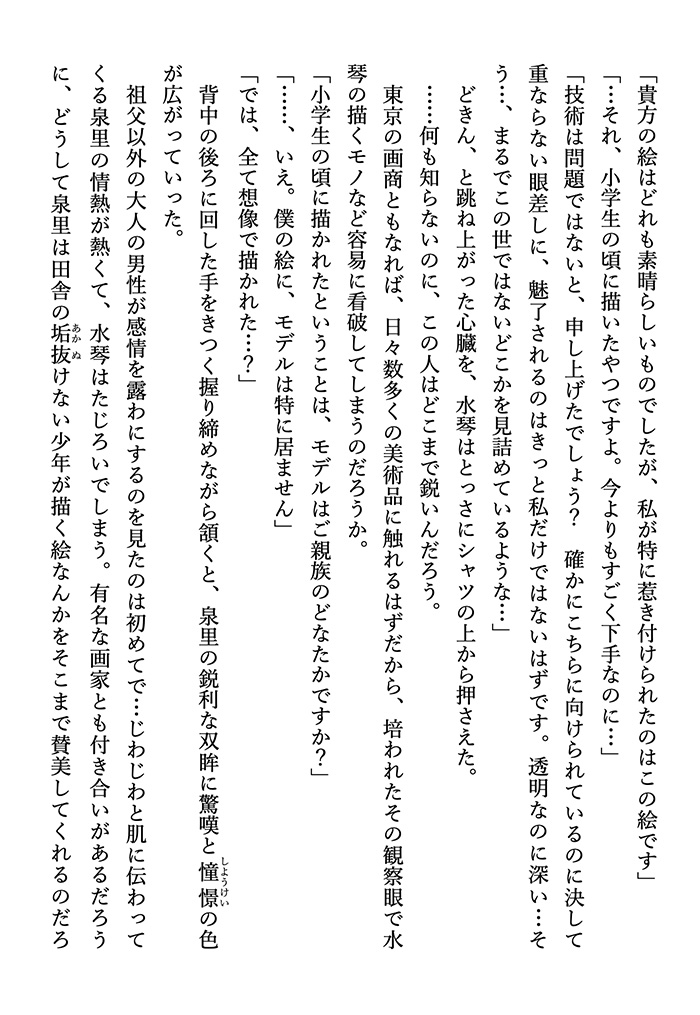 「貴方の絵はどれも素晴らしいものでしたが、私が特に惹き付けられたのはこの絵です」
「…それ、小学生の頃に描いたやつですよ。今よりもすごく下手なのに…」
「技術は問題ではないと、申し上げたでしょう？　確かにこちらに向けられているのに決して
重ならない眼差しに、魅了されるのはきっと私だけではないはずです。透明なのに深い…そ
う…、まるでこの世ではないどこかを見詰めているような…」
どきん、と跳ね上がった心臓を、水琴はとっさにシャツの上から押さえた。
……何も知らないのに、この人はどこまで鋭いんだろう。
東京の画商ともなれば、日々数多くの美術品に触れるはずだから、培われたその観察眼で水
琴の描くモノなど容易に看破してしまうのだろうか。
「小学生の頃に描かれたということは、モデルはご親族のどなたかですか？」
「……、いえ。僕の絵に、モデルは特に居ません」
「では、全て想像で描かれた…？」
背中の後ろに回した手をきつく握り締めながら頷くと、泉里の鋭利な双眸に驚嘆と憧憬の色
しょうけい
が広がっていった。
祖父以外の大人の男性が感情を露わにするのを見たのは初めてで…じわじわと肌に伝わって
くる泉里の情熱が熱くて、水琴はたじろいでしまう。有名な画家とも付き合いがあるだろう
に、どうして泉里は田舎の垢抜けない少年が描く絵なんかをそこまで賛美してくれるのだろ
あかぬ